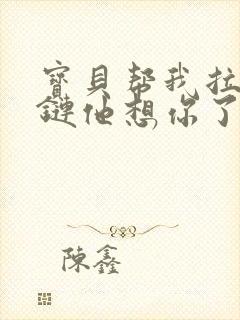 寶貝幫我拉
鏈他想你了
陳鑫